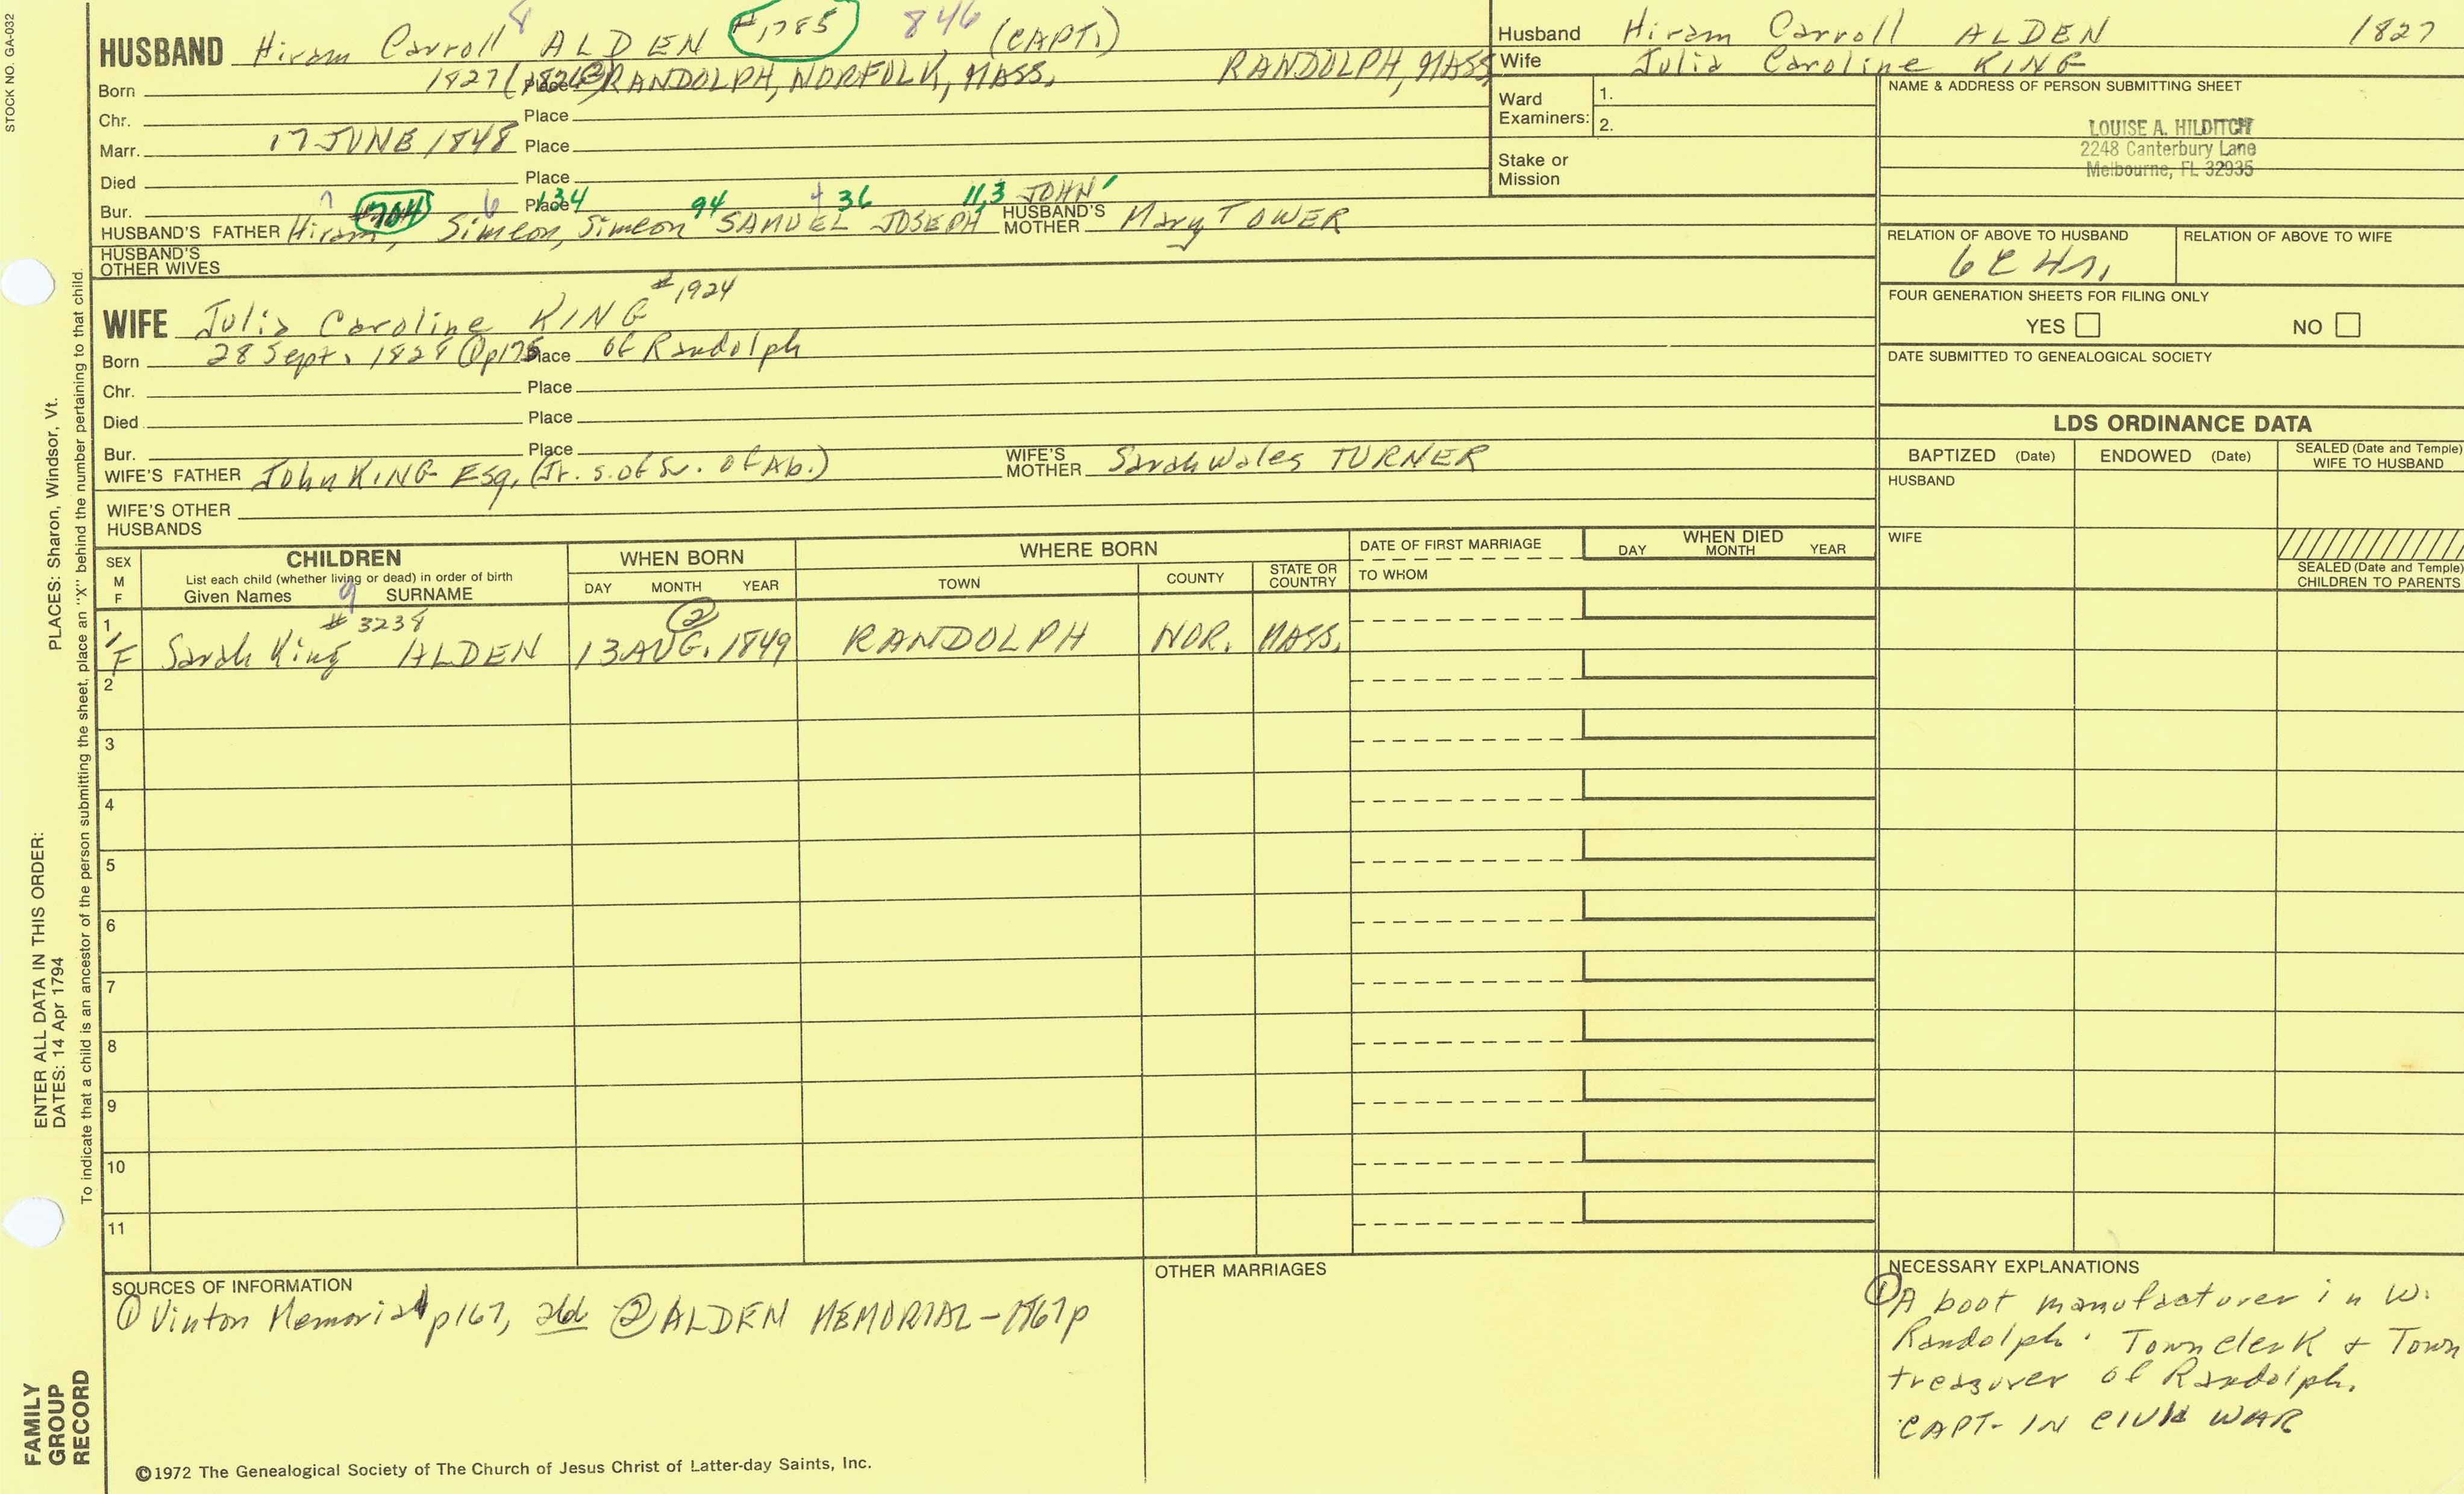 STOCK NO. GA-032
8
HUSBAND Hiram Carroll ALDEN #1785 846 (CAPT.)
Born 1827 Place RANDOLPH, NORFOLK, MASS. RANDOLPH, MASS
Chr. Place
Marr. 17 JUNE 1848 Place
Died Place
Bur. Place
7 6 134 94 4 36 11,3 JOHN'
HUSBAND'S FATHER Hiram, Simeon, Simeon SAMUEL JOSEPH HUSBAND'S MOTHER Mary TOWER
HUSBAND'S OTHER WIVES
#1924
WIFE Julia Caroline KING
Born 28 Sept. 1828 Place of Randolph
Chr. Place
Died Place
Bur. Place
WIFE'S FATHER John KING Esq. WIFE'S MOTHER Sarah Wales TURNER
WIFE'S OTHER HUSBANDS
Husband Hiram Carroll ALDEN 1827
Wife Julia Caroline KING
Ward Examiners: 1.
2.
Stake or Mission
NAME & ADDRESS OF PERSON SUBMITTING SHEET
LOUISE A. HILDITCH
2248 Canterbury Lane
Melbourne, FL 32935
RELATION OF ABOVE TO HUSBAND RELATION OF ABOVE TO WIFE
FOUR GENERATION SHEETS FOR FILING ONLY
YES NO
DATE SUBMITTED TO GENEALOGICAL SOCIETY
LDS ORDINANCE DATA
BAPTIZED (Date) ENDOWED (Date) SEALED (Date and Temple) WIFE TO HUSBAND
HUSBAND
WIFE
SEALED (Date and Temple) CHILDREN TO PARENTS
SEX M F
CHILDREN
List each child (whether living or dead) in order of birth
Given Names 9 SURNAME
WHEN BORN
DAY MONTH YEAR
WHERE BORN
TOWN COUNTY STATE OR COUNTRY
DATE OF FIRST MARRIAGE
TO WHOM
WHEN DIED
DAY MONTH YEAR
#3238 2
1 F Sarah King ALDEN 13 AUG. 1849 RANDOLPH NOR. MASS.
2
3
4
5
6
7
8
9
10
11
SOURCES OF INFORMATION
1 Vinton Memorial p167, 2 ALDEN MEMORIAL-1867p
OTHER MARRIAGES
NECESSARY EXPLANATIONS
1 A boot manufacturer in W.
Randolph. Town clerk + Town
treasurer of Randolph.
CAPT- IN CIVIL WAR
©1972 The Genealogical Society of The Church of Jesus Christ of Latter-day Saints, Inc.
FAMILY
GROUP
RECORD
ENTER ALL DATA IN THIS ORDER:
DATES: 14 Apr 1794
PLACES: Sharon, Windsor, Vt.
To indicate that a child is an ancestor of the person submitting the sheet, place an "X" behind the number pertaining to that child.